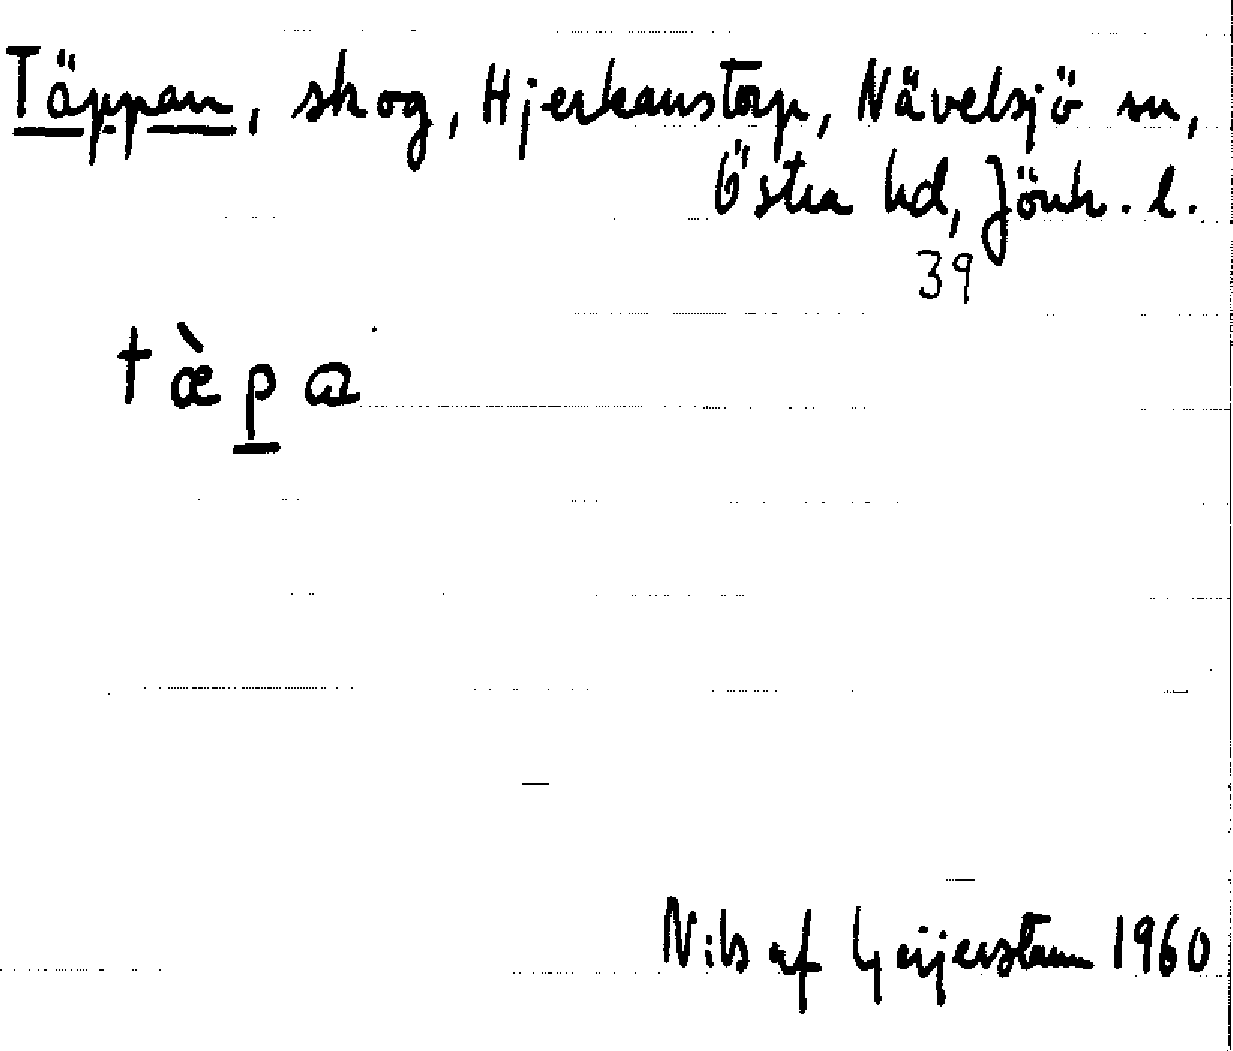 Täppan, skog, Hjerkanstorp, Nävelsjö sn,
Östra hd, Jönk. l.
39
tæ̀p̲a
Nils af Geijerstam 1960